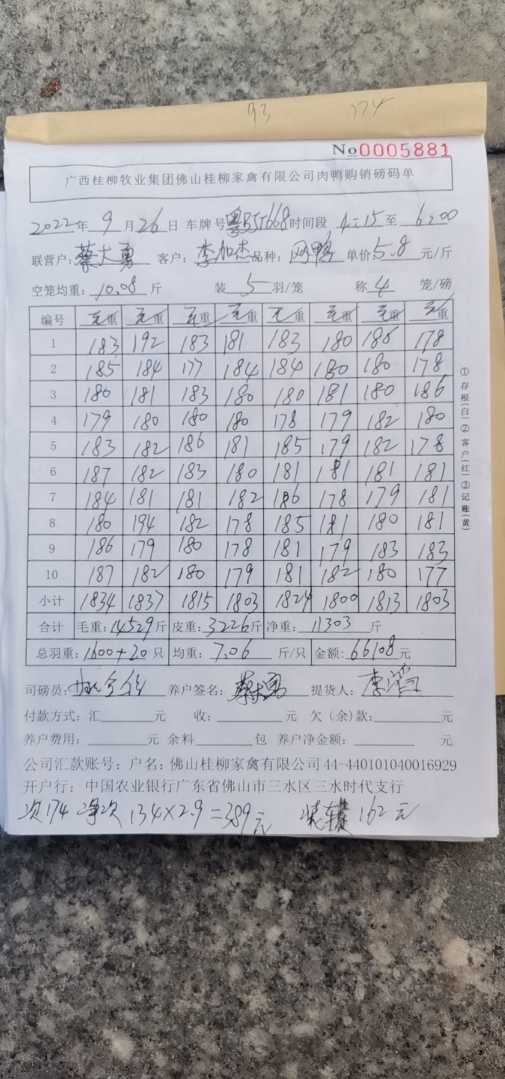 93 174
No0005881
广西桂柳牧业集团佛山桂柳家禽有限公司肉鸭购销磅码单
2022年 9 月 26 日 车牌号 668 时间段 4:15 至 6:00
联营户: 蔡大勇 客户: 李加杰 品种: 网鸭 单价 5.8 元/斤
空笼均重: 10.08 斤 装 5 羽/笼 称 4 笼/磅
编号 毛重 毛重 毛重 毛重 毛重 毛重 毛重 毛重
1 183 192 183 181 183 180 186 178
2 185 184 177 184 184 180 180 178
3 180 181 183 180 180 181 180 186
4 179 180 180 180 178 179 182 180
5 183 182 186 181 185 179 182 178
6 187 182 183 180 181 181 181 181
7 184 181 181 182 186 178 179 181
8 180 194 182 178 185 181 180 181
9 186 179 180 178 181 179 183 183
10 187 182 180 179 181 182 180 177
小计 1834 1837 1815 1803 1824 1800 1813 1803
合计 毛重: 14529 斤 皮重: 3226 斤 净重: 11303 斤
总羽重: 1600+20 只 均重: 7.06 斤/只 金额: 66108 元
司磅员: 养户签名: 蔡大勇 提货人: 李
付款方式: 汇 元 收: 元 欠(余)款: 元
养户费用: 元 余料 包 养户净金额: 元
公司汇款账号: 户名: 佛山桂柳家禽有限公司 44-440101040016929
开户行: 中国农业银行广东省佛山市三水区三水时代支行
次174 净次 134×2.9=389元 162元
①存根(白)②客户(红)③记账(黄)